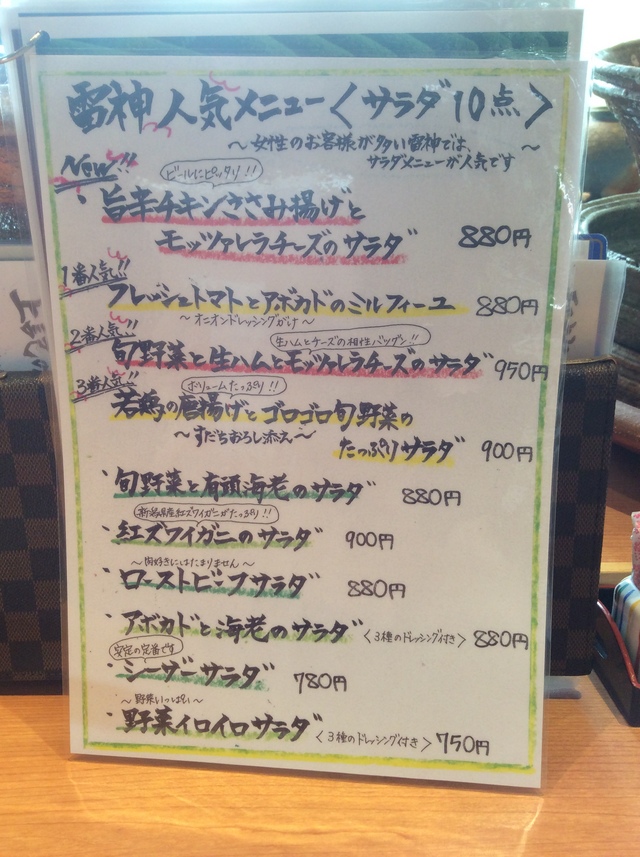 雷神人気メニュー〈サラダ10点〉
〜女性のお客様が多い雷神では、
サラダメニューが人気です〜
New!!
ビールにピッタリ!!
・旨辛チキンささみ揚げと
モッツァレラチーズのサラダ 880円
1番人気!!
フレッシュトマトとアボカドのミルフィーユ 880円
〜オニオンドレッシングがけ〜
2番人気!!
生ハムとチーズの相性バツグン!!
旬野菜と生ハムとモッツァレラチーズのサラダ 950円
3番人気!!
ボリュームたっぷり!!
若鶏の唐揚げとゴロゴロ旬野菜の
〜すだちおろし添え〜
たっぷりサラダ 900円
・旬野菜と有頭海老のサラダ 880円
新潟県産紅ズワイガニがたっぷり!!
・紅ズワイガニのサラダ 900円
〜肉好きにはたまりません〜
・ローストビーフサラダ 880円
・アボカドと海老のサラダ〈3種のドレッシング付き〉 880円
安定の定番です
・シーザーサラダ 780円
〜野菜いっぱい〜
・野菜イロイロサラダ〈3種のドレッシング付き〉 750円